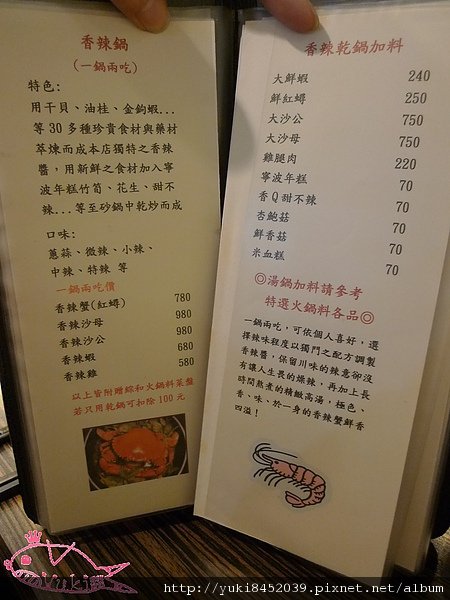 香辣鍋
(一鍋兩吃)
特色:
用干貝、油桂、金鉤蝦...
等30多種珍貴食材與藥材
萃煉而成本店獨特之香辣
醬,用新鮮之食材加入寧
波年糕竹筍、花生、甜不
辣...等至砂鍋中乾炒而成
口味:
蔥蒜、微辣、小辣、
中辣、特辣 等
一鍋兩吃價
香辣蟹(紅蟳) 780
香辣沙母 980
香辣沙公 980
香辣蝦 680
香辣雞 580
以上皆附贈綜和火鍋料菜盤
若只用乾鍋可扣除100元
香辣乾鍋加料
大鮮蝦 240
鮮紅蟳 250
大沙公 750
大沙母 750
雞腿肉 220
寧波年糕 70
香Q甜不辣 70
杏鮑菇 70
鮮香菇 70
米血糕 70
◎湯鍋加料請參考
特選火鍋料各品◎
一鍋兩吃,可依個人喜好,選
擇辣味程度以獨門之配方調製
香辣醬,保留川味的辣意卻沒
有讓人生畏的燥辣,再加上長
時間熬煮的精緻高湯,極色、
香、味、於一身的香辣蟹鮮香
四溢!
Yuki
http://yuki8452039.pixnet.net/album